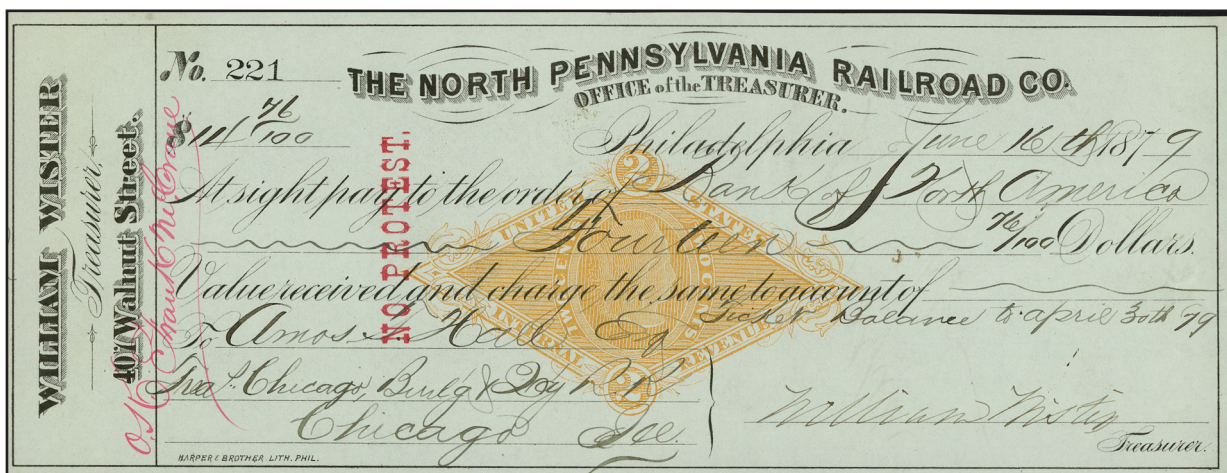 WILLIAM WISTER
Treasurer,
407 Walnut Street.
No. 221
THE NORTH PENNSYLVANIA RAILROAD CO.
OFFICE of the TREASURER.
$14 76/100
Philadelphia June 16th 1879
At sight pay to the order of Bank of North America
Fourteen 76/100 Dollars.
Value received and charge the same to account of
Ticket Balance to april 30th 79
To Amos Hall Esq
Treas. Chicago, Burlg & Qy R R
Chicago Ill.
William Wister
Treasurer.
NO PROTEST.
O.K. Frank
UNITED STATES
INTERNAL REVENUE
2
2
HARPER & BROTHER LITH. PHIL.